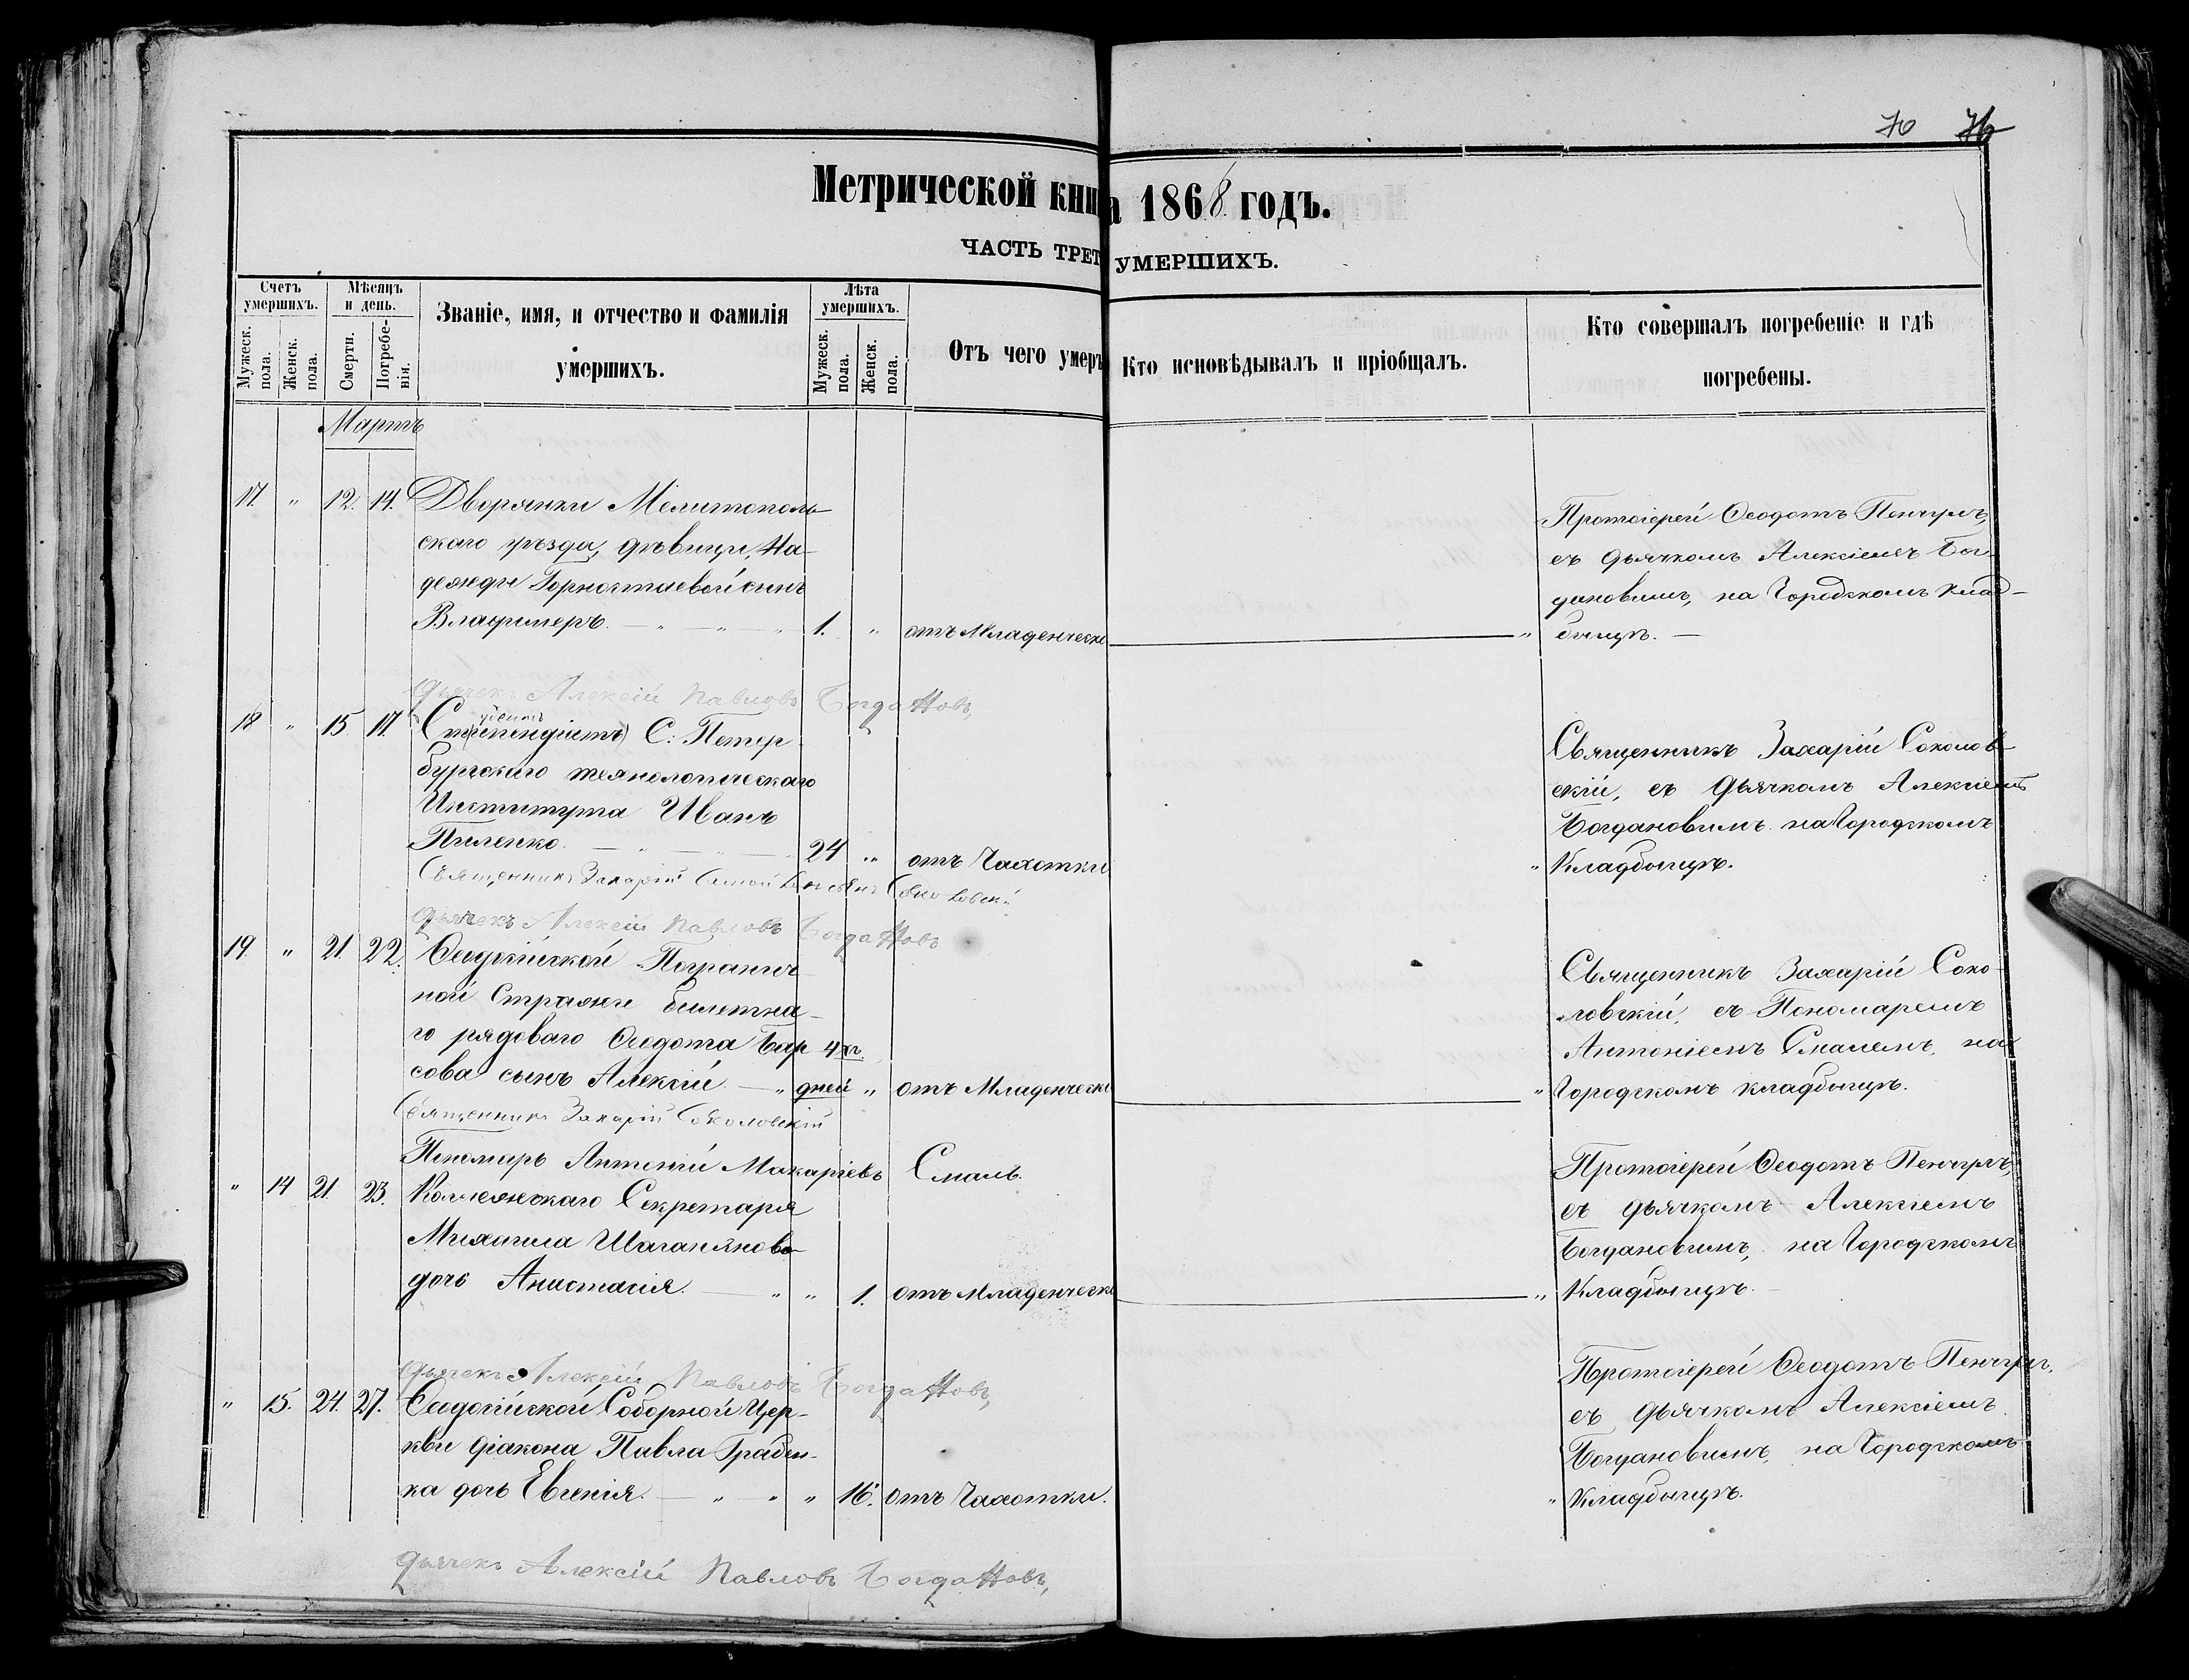 70 76
Метрической кни
а 1868 годъ.
ЧАСТЬ ТРЕТ
УМЕРШИХЪ.
Счетъ умершихъ.
Мужеск. пола.
Женск. пола.
Мѣсяцъ и день.
Смерти.
Погребенія.
Званіе, имя, и отчество и фамилія
умершихъ.
Лѣта умершихъ.
Мужеск. пола.
Женск. пола.
Отъ чего умеръ
Кто исповѣдывалъ и пріобщалъ.
Кто совершалъ погребеніе и гдѣ
погребены.
Мартъ
17. " 12. 14. Дворянки Мелитополь-
скаго уѣзда, дѣвицы, На-
дежды Горностаевой сынъ
Владимеръ. — " — " — " 1. " отъ Младенческо
Протоіерей Ѳеодотъ
съ дьячкомъ Алексіемъ Бог-
дановымъ, на Городскомъ клад-
" бищѣ. —
Дьячекъ Алексій Павловъ Богдановъ,
18 " 15 17. Стипендіатъ С: Петер-
бургскаго технологическаго
Института Иванъ
Пиленко. — " — " — " 24 " отъ Чахотки
Священникъ Захарій Соколов-
скій, съ дьячкомъ Алексіемъ
Богдановымъ на Городскомъ
" Кладбищѣ.
Священникъ Захарій Соколовскій
Дьячекъ Алексій Павловъ Богдановъ
19. " 21. 22. Ѳеодосійской Погранич-
ной Стражи билетна-
го рядоваго Ѳеодота Бар- 4хъ
сова сынъ Алексій — " дней " отъ Младенческо
Священникъ Захарій Соко-
ловскій, съ Пономаремъ
Антоніемъ Смалемъ, на
" Городскомъ кладбищѣ.
Священникъ Захарій Соколовскій
Пономарь Антоній Макаріевъ Смаль.
" 14 21. 23. Коллежскаго Секретаря
Михаила Шаганянова
дочь Анистасія. — " " 1. отъ Младенческо
Протоіерей Ѳеодотъ
съ дьячкомъ Алексіемъ
Богдановымъ, на Городскомъ
" Кладбищѣ. —
Дьячекъ Алексій Павловъ Богдановъ,
" 15. 24. 27. Ѳеодосійской Соборной Цер-
кви діакона Павла Грабен-
ка дочь Евгенія. — " — " " 16. отъ Чахотки.
Протоіерей Ѳеодотъ
съ дьячкомъ Алексіемъ
Богдановымъ, на Городскомъ
" Кладбищѣ.
Дьячекъ Алексій Павловъ Богдановъ,